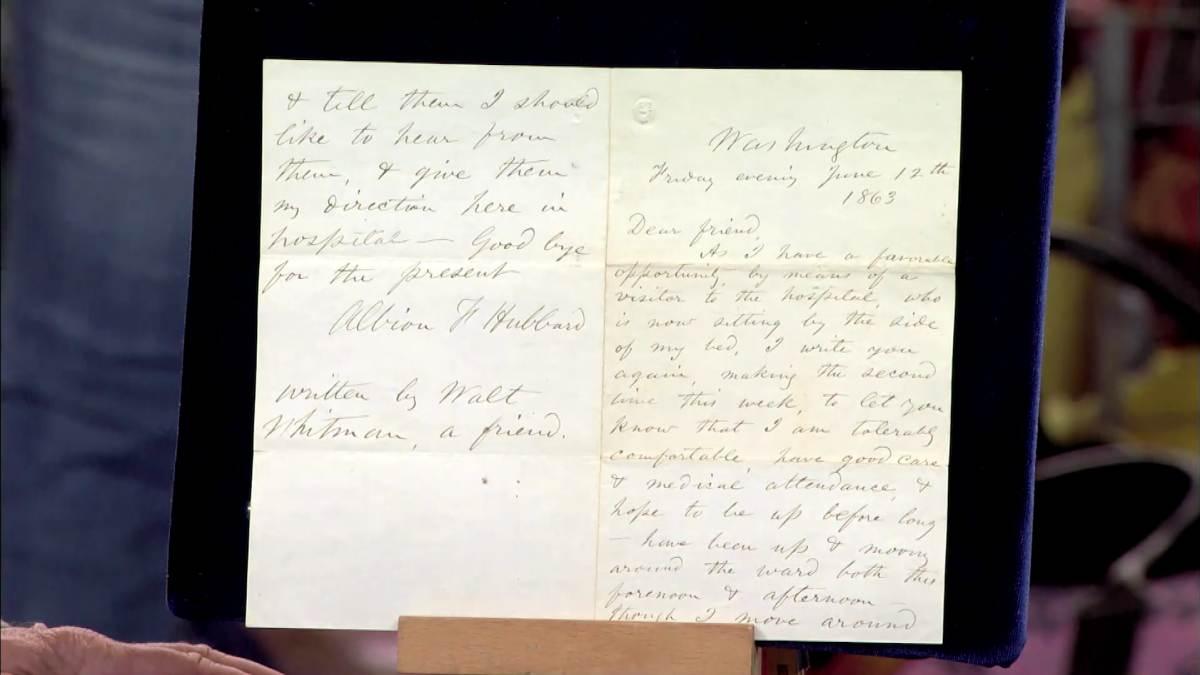 & tell them I should
like to hear from
them, & give them
my direction here in
hospital — Good bye
for the present
Albion F Hubbard
written by Walt
Whitman, a friend.
Washington
Friday evening June 12th
1863
Dear friend,
As I have a favorable
opportunity, by means of a
visitor to the hospital, who
is now sitting by the side
of my bed, I write you
again, making the second
time this week, to let you
know that I am tolerably
comfortable, have good care
& medical attendance, &
hope to be up before long
— have been up & moving
around the ward both this
forenoon & afternoon —
though I move around